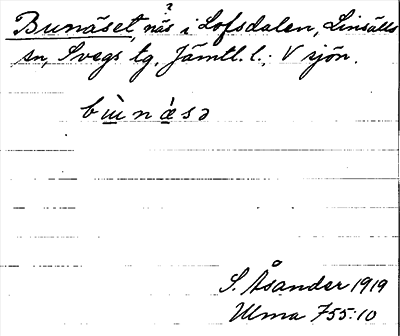 ?
Bunäset, näs i Lofsdalen, Linsälls
sn, Svegs tg, Jämtl. l.; V sjön.
bùnæ̀sə
S. Åsander 1919
Ulma 755:10